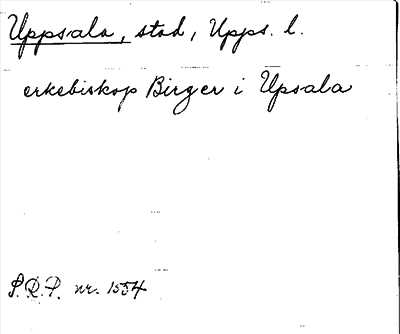 Uppsala, stad, Upps. l.
erkebiskop Birger i Upsala
S.R.P. nr. 1554